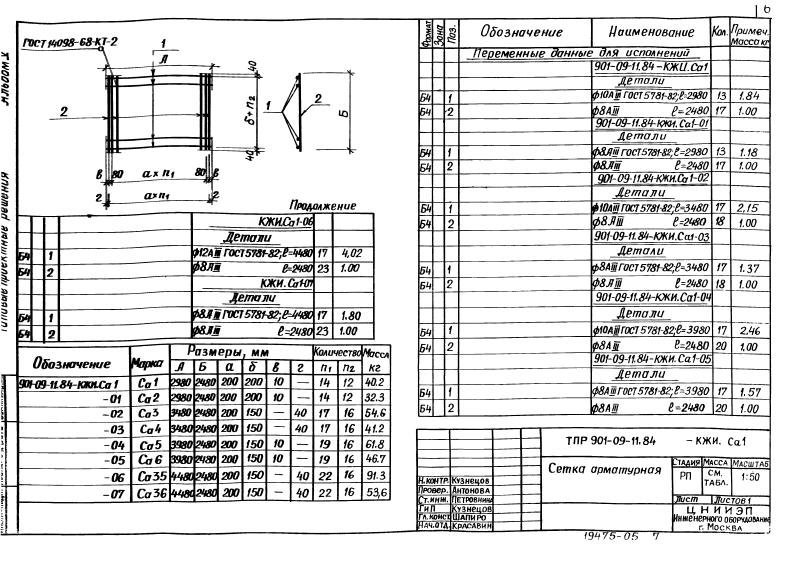 6
Альбом X
Типовые проектные решения
ГОСТ 14098-68-КТ-2
1
Л
2
40
б × п2
40
1
2
Б
в 80 а × п1 80 в
г а × п1 г
Продолжение
КЖИ.Са1-06
Детали
Б4 1 ф12АIII ГОСТ 5781-82; ℓ=4480 17 4,02
Б4 2 ф8АIII ℓ=2480 23 1.00
КЖИ.Са1-07
Детали
Б4 1 ф8АIII ГОСТ 5781-82; ℓ=4480 17 1.80
Б4 2 ф8АIII ℓ=2480 23 1.00
Обозначение Марка Размеры, мм Количество Масса кг
Л Б а б в г п1 п2
901-09-11.84-КЖИ.Са1 Са1 2980 2480 200 200 10 — 14 12 40.2
-01 Са2 2980 2480 200 200 10 — 14 12 32.3
-02 Са3 3480 2480 200 150 — 40 17 16 54.6
-03 Са4 3480 2480 200 150 — 40 17 16 41.2
-04 Са5 3980 2480 200 150 10 — 19 16 61.8
-05 Са6 3980 2480 200 150 10 — 19 16 46.7
-06 Са35 4480 2480 200 150 — 40 22 16 91.3
-07 Са36 4480 2480 200 150 — 40 22 16 53,6
Формат Зона Поз. Обозначение Наименование Кол. Примеч. Масса кг
Переменные данные для исполнений
901-09-11.84-КЖИ.Са1
Детали
Б4 1 ф10АIII ГОСТ 5781-82; ℓ=2980 13 1.84
Б4 2 ф8АIII ℓ=2480 17 1.00
901-09-11.84-КЖИ.Са1-01
Детали
Б4 1 ф8АIII ГОСТ 5781-82; ℓ=2980 13 1.18
Б4 2 ф8АIII ℓ=2480 17 1.00
901-09-11.84-КЖИ.Са1-02
Детали
Б4 1 ф10АIII ГОСТ 5781-82; ℓ=3480 17 2,15
Б4 2 ф8АIII ℓ=2480 18 1.00
901-09-11.84-КЖИ.Са1-03
Детали
Б4 1 ф8АIII ГОСТ 5781-82; ℓ=3480 17 1.37
Б4 2 ф8АIII ℓ=2480 18 1.00
901-09-11.84-КЖИ.Са1-04
Детали
Б4 1 ф10АIII ГОСТ 5781-82; ℓ=3980 17 2.46
Б4 2 ф8АIII ℓ=2480 20 1.00
901-09-11.84-КЖИ.Са1-05
Детали
Б4 1 ф8АIII ГОСТ 5781-82; ℓ=3980 17 1.57
Б4 2 ф8АIII ℓ=2480 20 1.00
ТПР 901-09-11.84 - КЖИ. Са1
Сетка арматурная
Стадия Масса Масштаб
РП см. табл. 1:50
Лист Листов 1
ЦНИИЭП
Инженерного оборудования
г. Москва
Н.контр. Кузнецов
Провер. Антонова
Ст.инж. Петровнина
ГиП Кузнецов
Гл. конст. Шапиро
Нач.отд. Красавин
19475-05 7